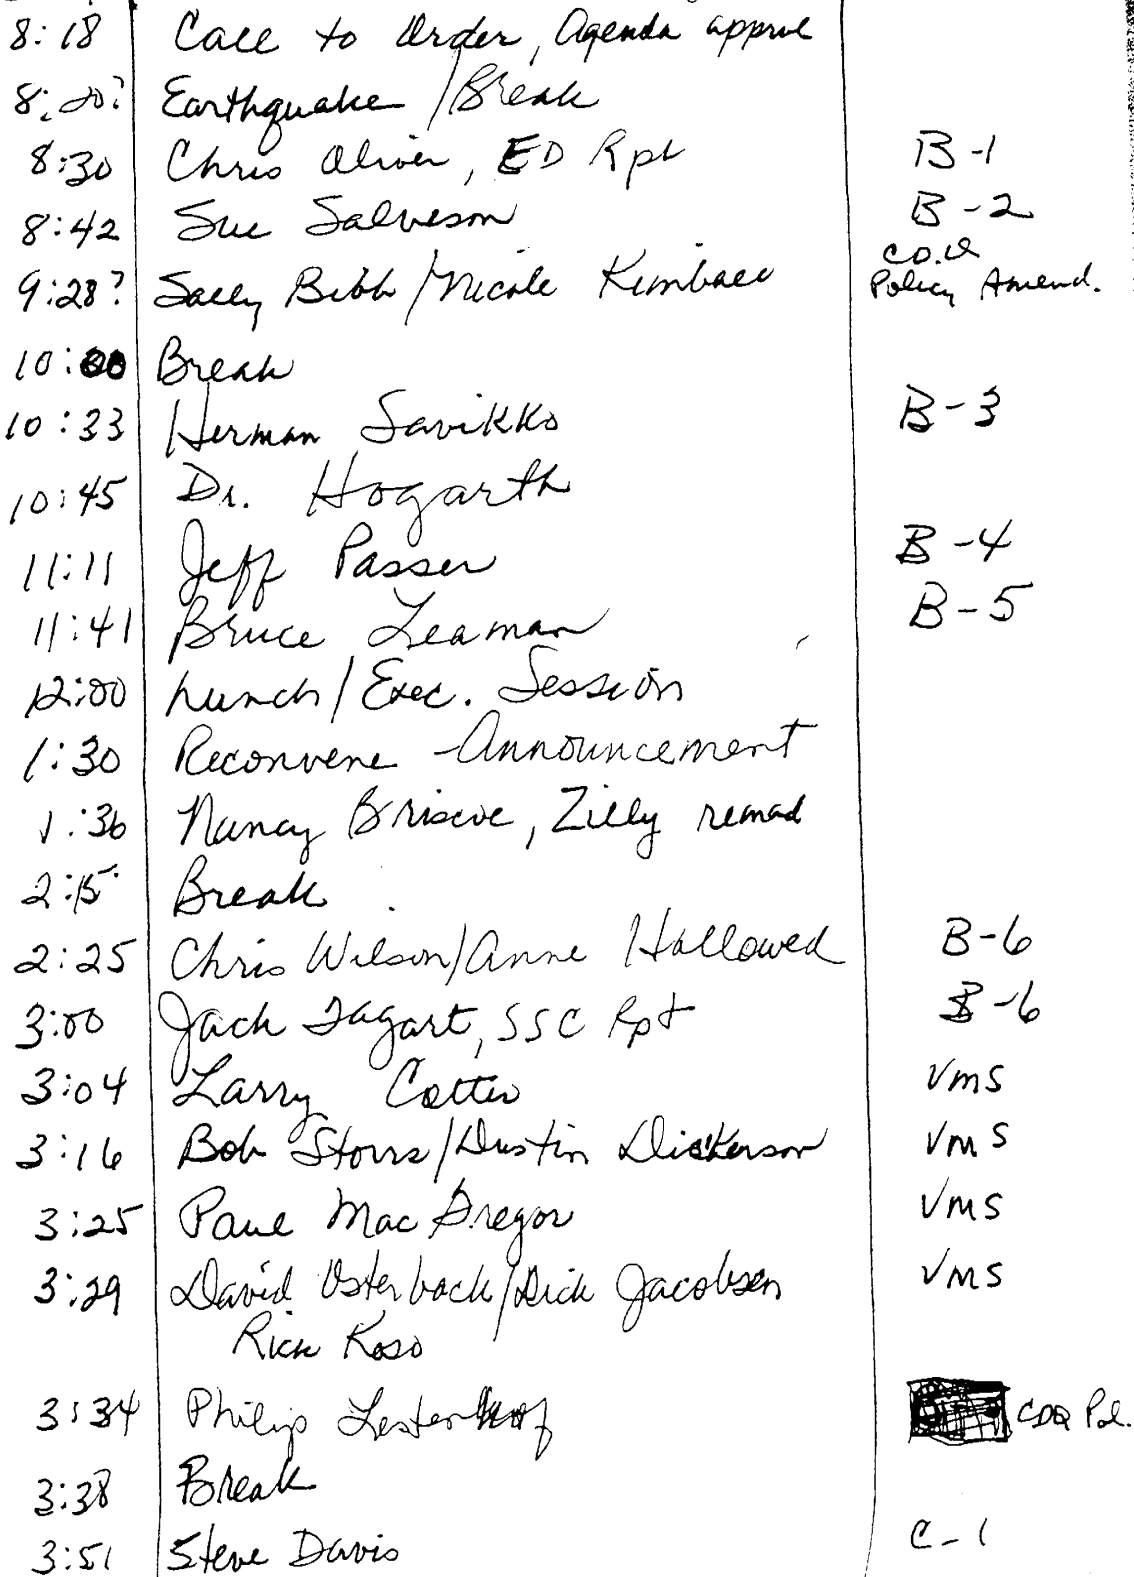 8:18 Call to Order, Agenda approve
8:20? Earthquake/Break
8:30 Chris Oliver, ED Rpt B-1
8:42 Sue Salveson B-2
9:28? Sally Bibb/Nicole Kimball CDQ Policy Amend.
10:00 Break
10:33 Herman Savikko B-3
10:45 Dr. Hogarth
11:11 Jeff Passer B-4
11:41 Bruce Leaman B-5
12:00 Lunch/Exec. Session
1:30 Reconvene - Announcement
1:36 Nancy Briscoe, Zilly remand
2:15 Break
2:25 Chris Wilson/Anne Hollowed B-6
3:00 Jack Tagart, SSC Rpt B-6
3:04 Larry Cotter VMS
3:16 Bob Storrs/Dustin Dickerson VMS
3:25 Paul MacGregor VMS
3:29 David Osterback/Dick Jacobsen VMS
Rick Koso
3:34 Philip Lestenkof CDQ Pol.
3:38 Break
3:51 Steve Davis C-1